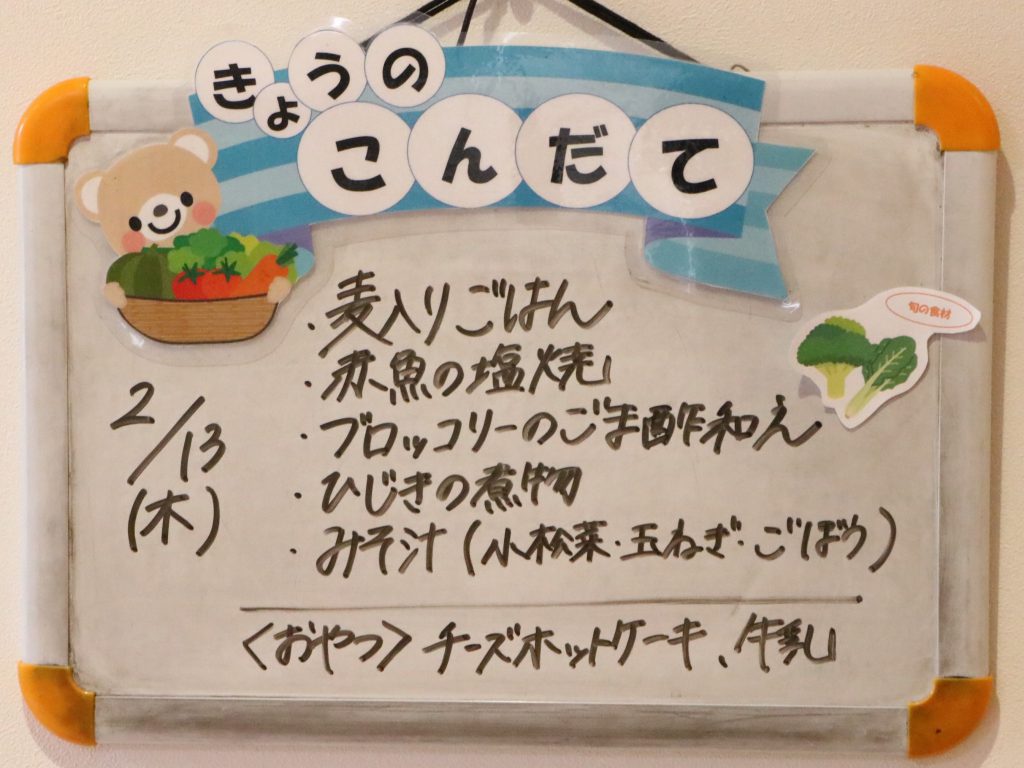 きょうの
こんだて
旬の食材
2/13
(木)
・麦入りごはん
・赤魚の塩焼
・ブロッコリーのごま酢和え
・ひじきの煮物
・みそ汁(小松菜・玉ねぎ・ごぼう)
〈おやつ〉チーズホットケーキ、牛乳